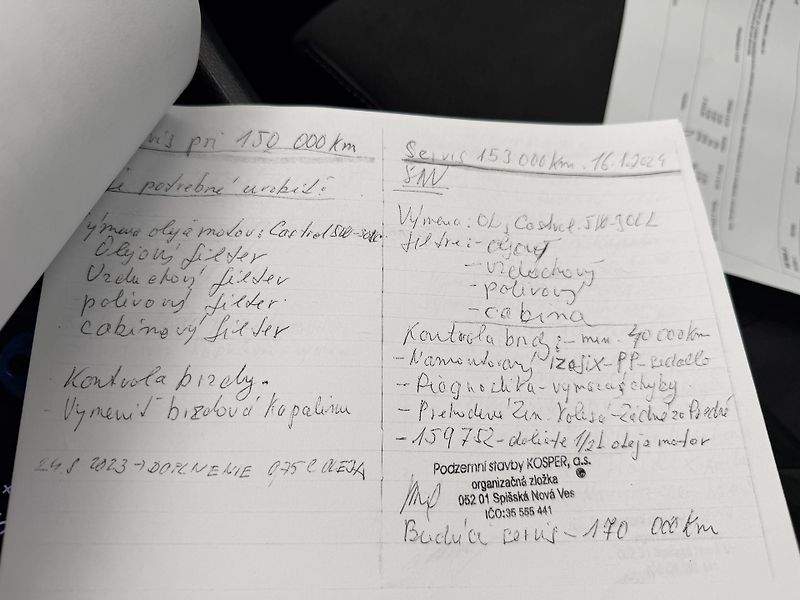 vis pri 150 000 Km
potrebné urobiť:
Výmena oleja motor: Castrol 5W-30LL
Olejový filter
Vzduchový filter
polivový filter
cabinový filter
Kontrola brzdy.
- Vymeniť brzdová Kapalinu
24.8 2023 → DOPLNENIE 0,75 L OLEJA
Servis 153 000 Km. 16.1.2024
SNV
Výmena: Olej Castrol. 5W-30LL
filtre: - olejový
- vzduchový
- polivový
- cabina
Kontrola brzdy: - min. 40 000 Km
- Namontovaný izofix - PP - sedadlo
- Diagnostika - vymazaš chyby.
- Zim. Kolesá - Zadné za Predné
- 159752 - doliate 1/2 L oleja motor
Podzemní stavby KOSPER, a.s.
organizačná zložka
052 01 Spišská Nová Ves
IČO:35 555 441
Budúca servis - 170 000 Km